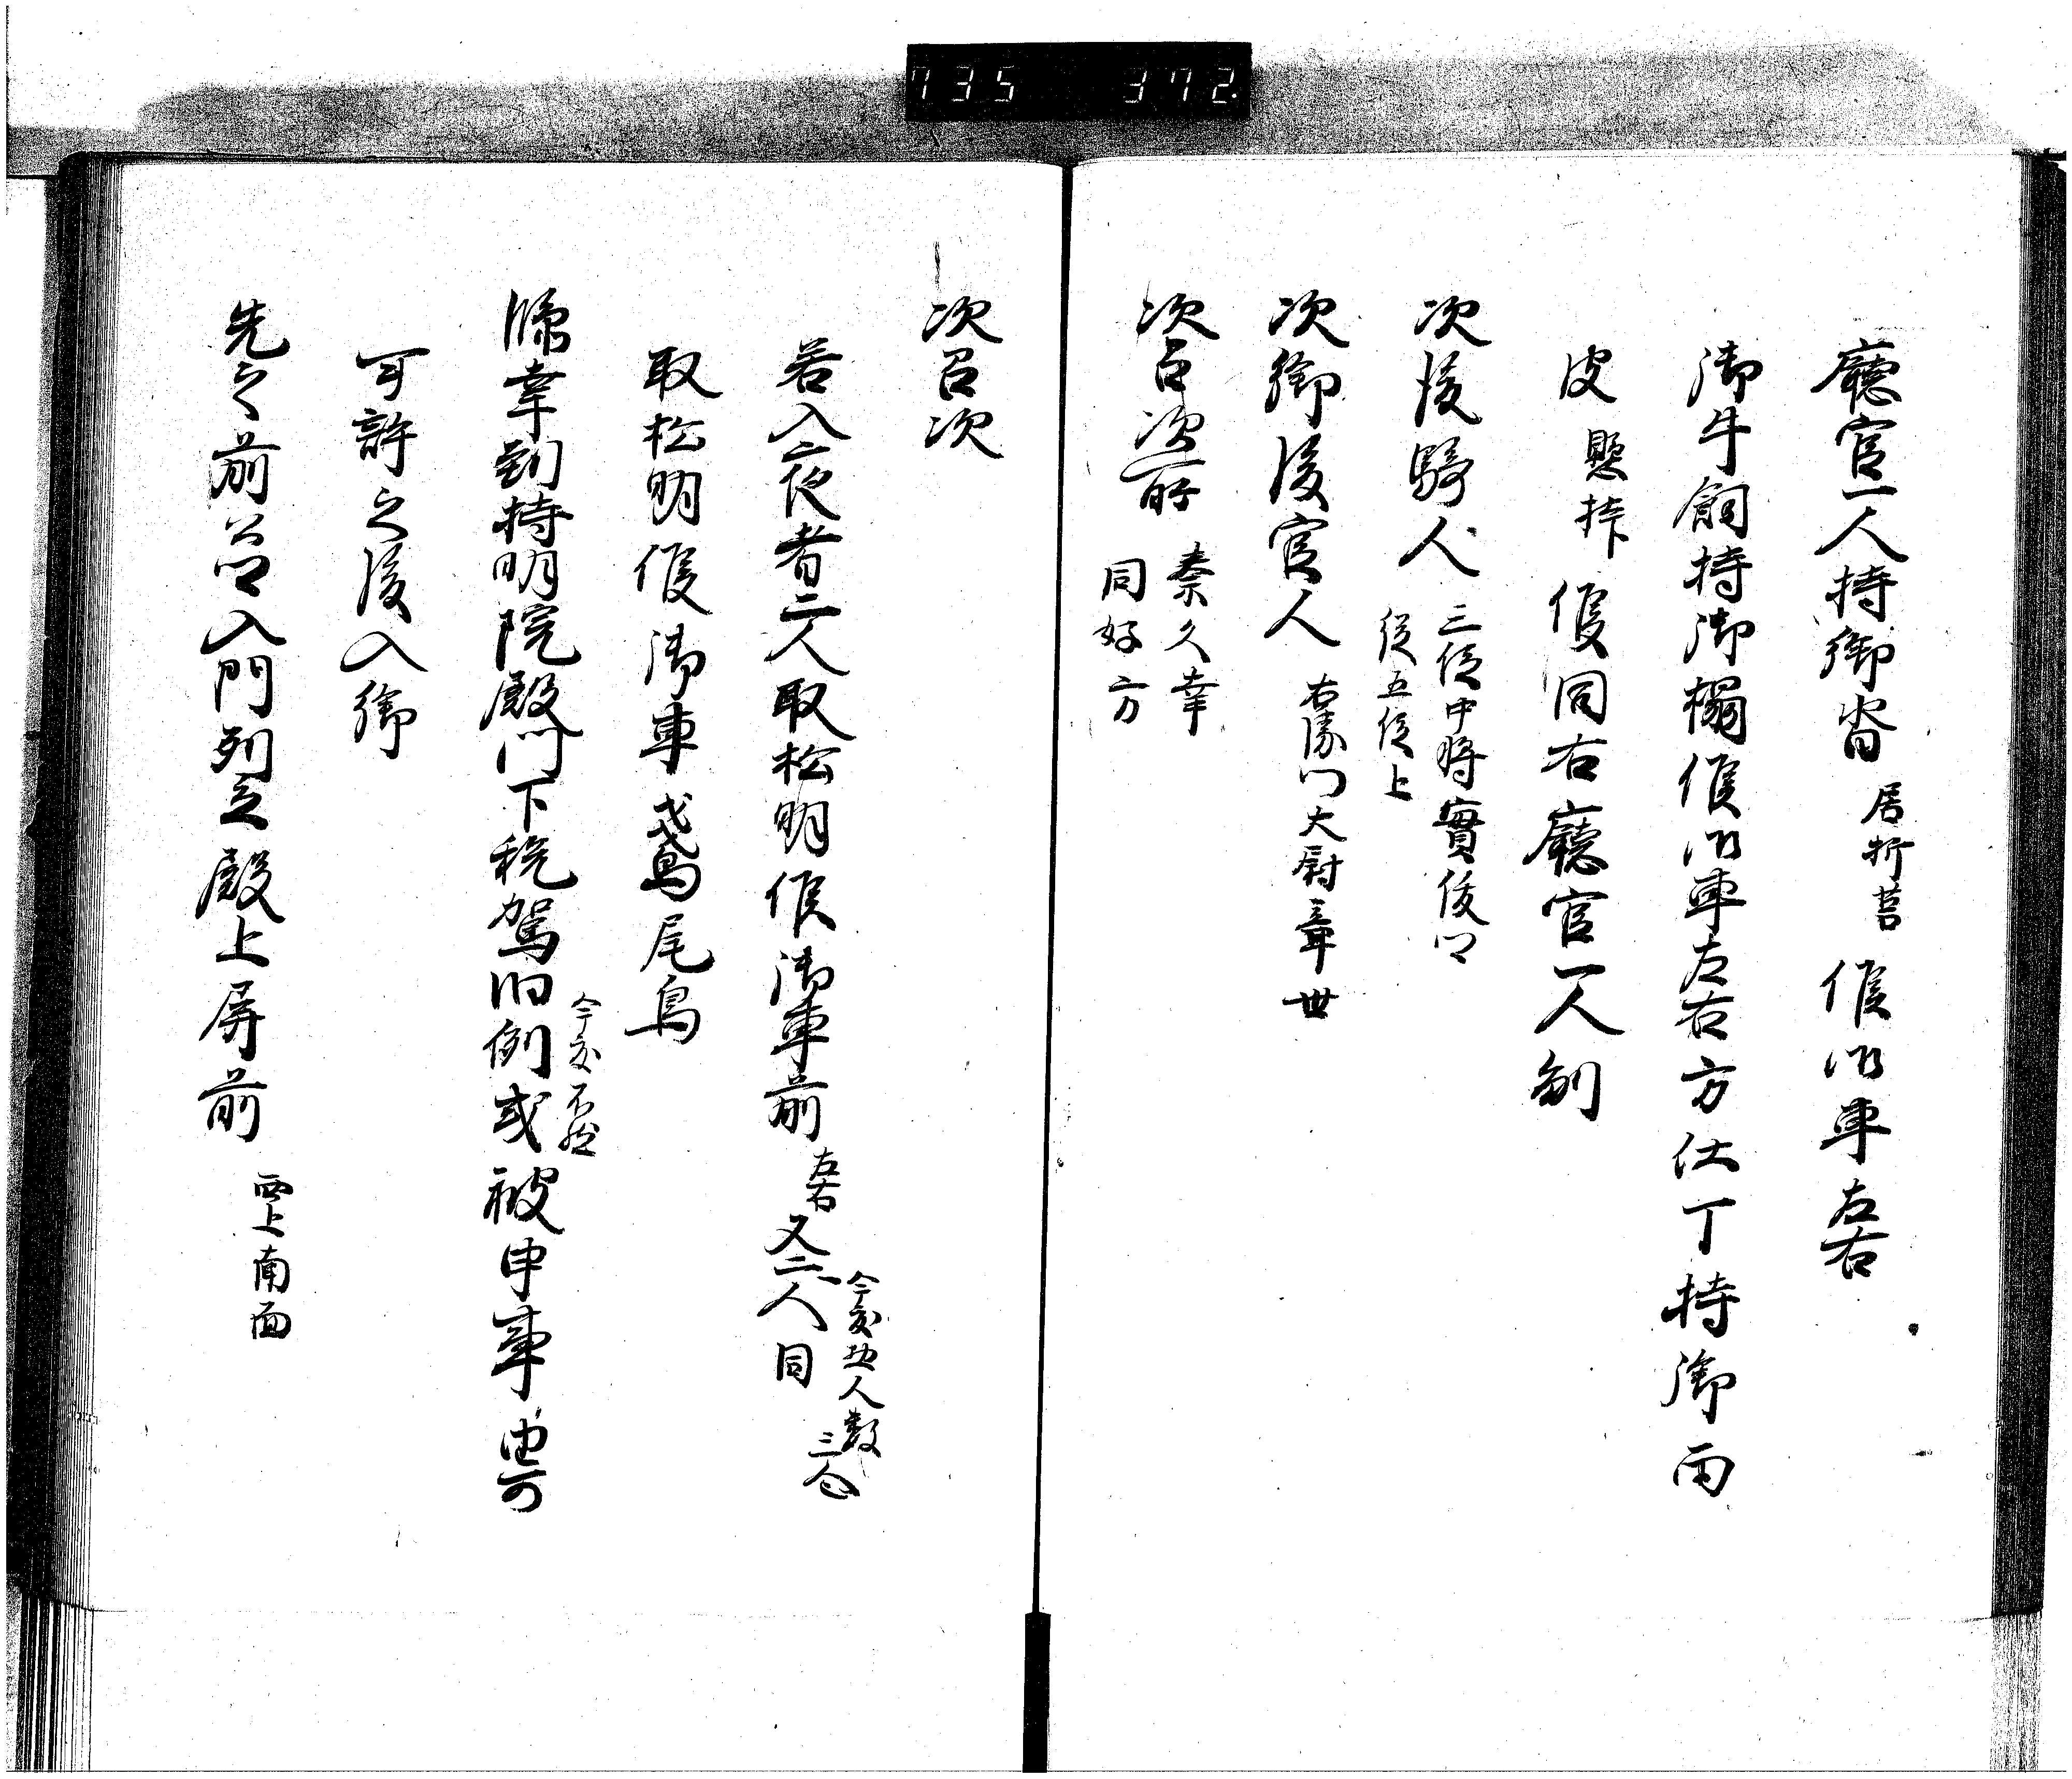 735 372
廳官一人持御沓 居折莒 候御車左右
御牛飼持御榻候御車左右方仕丁持御雨
皮 懸持 候同右廳官一人
次後騎人 三位中将實俊卿
従五位上
次御後官人 右衛門大尉章世
次召次所 秦久幸
同好方
次召次
若入夜者二人取松明候御車前 左右 又二人同 今度此人数
三合
取松明候御車鵄尾
臨幸到持明院殿門下税駕旧例或被申事由 可 今度不然
可許之後入御
先之前公卿入門列立殿上屏前 西上南面